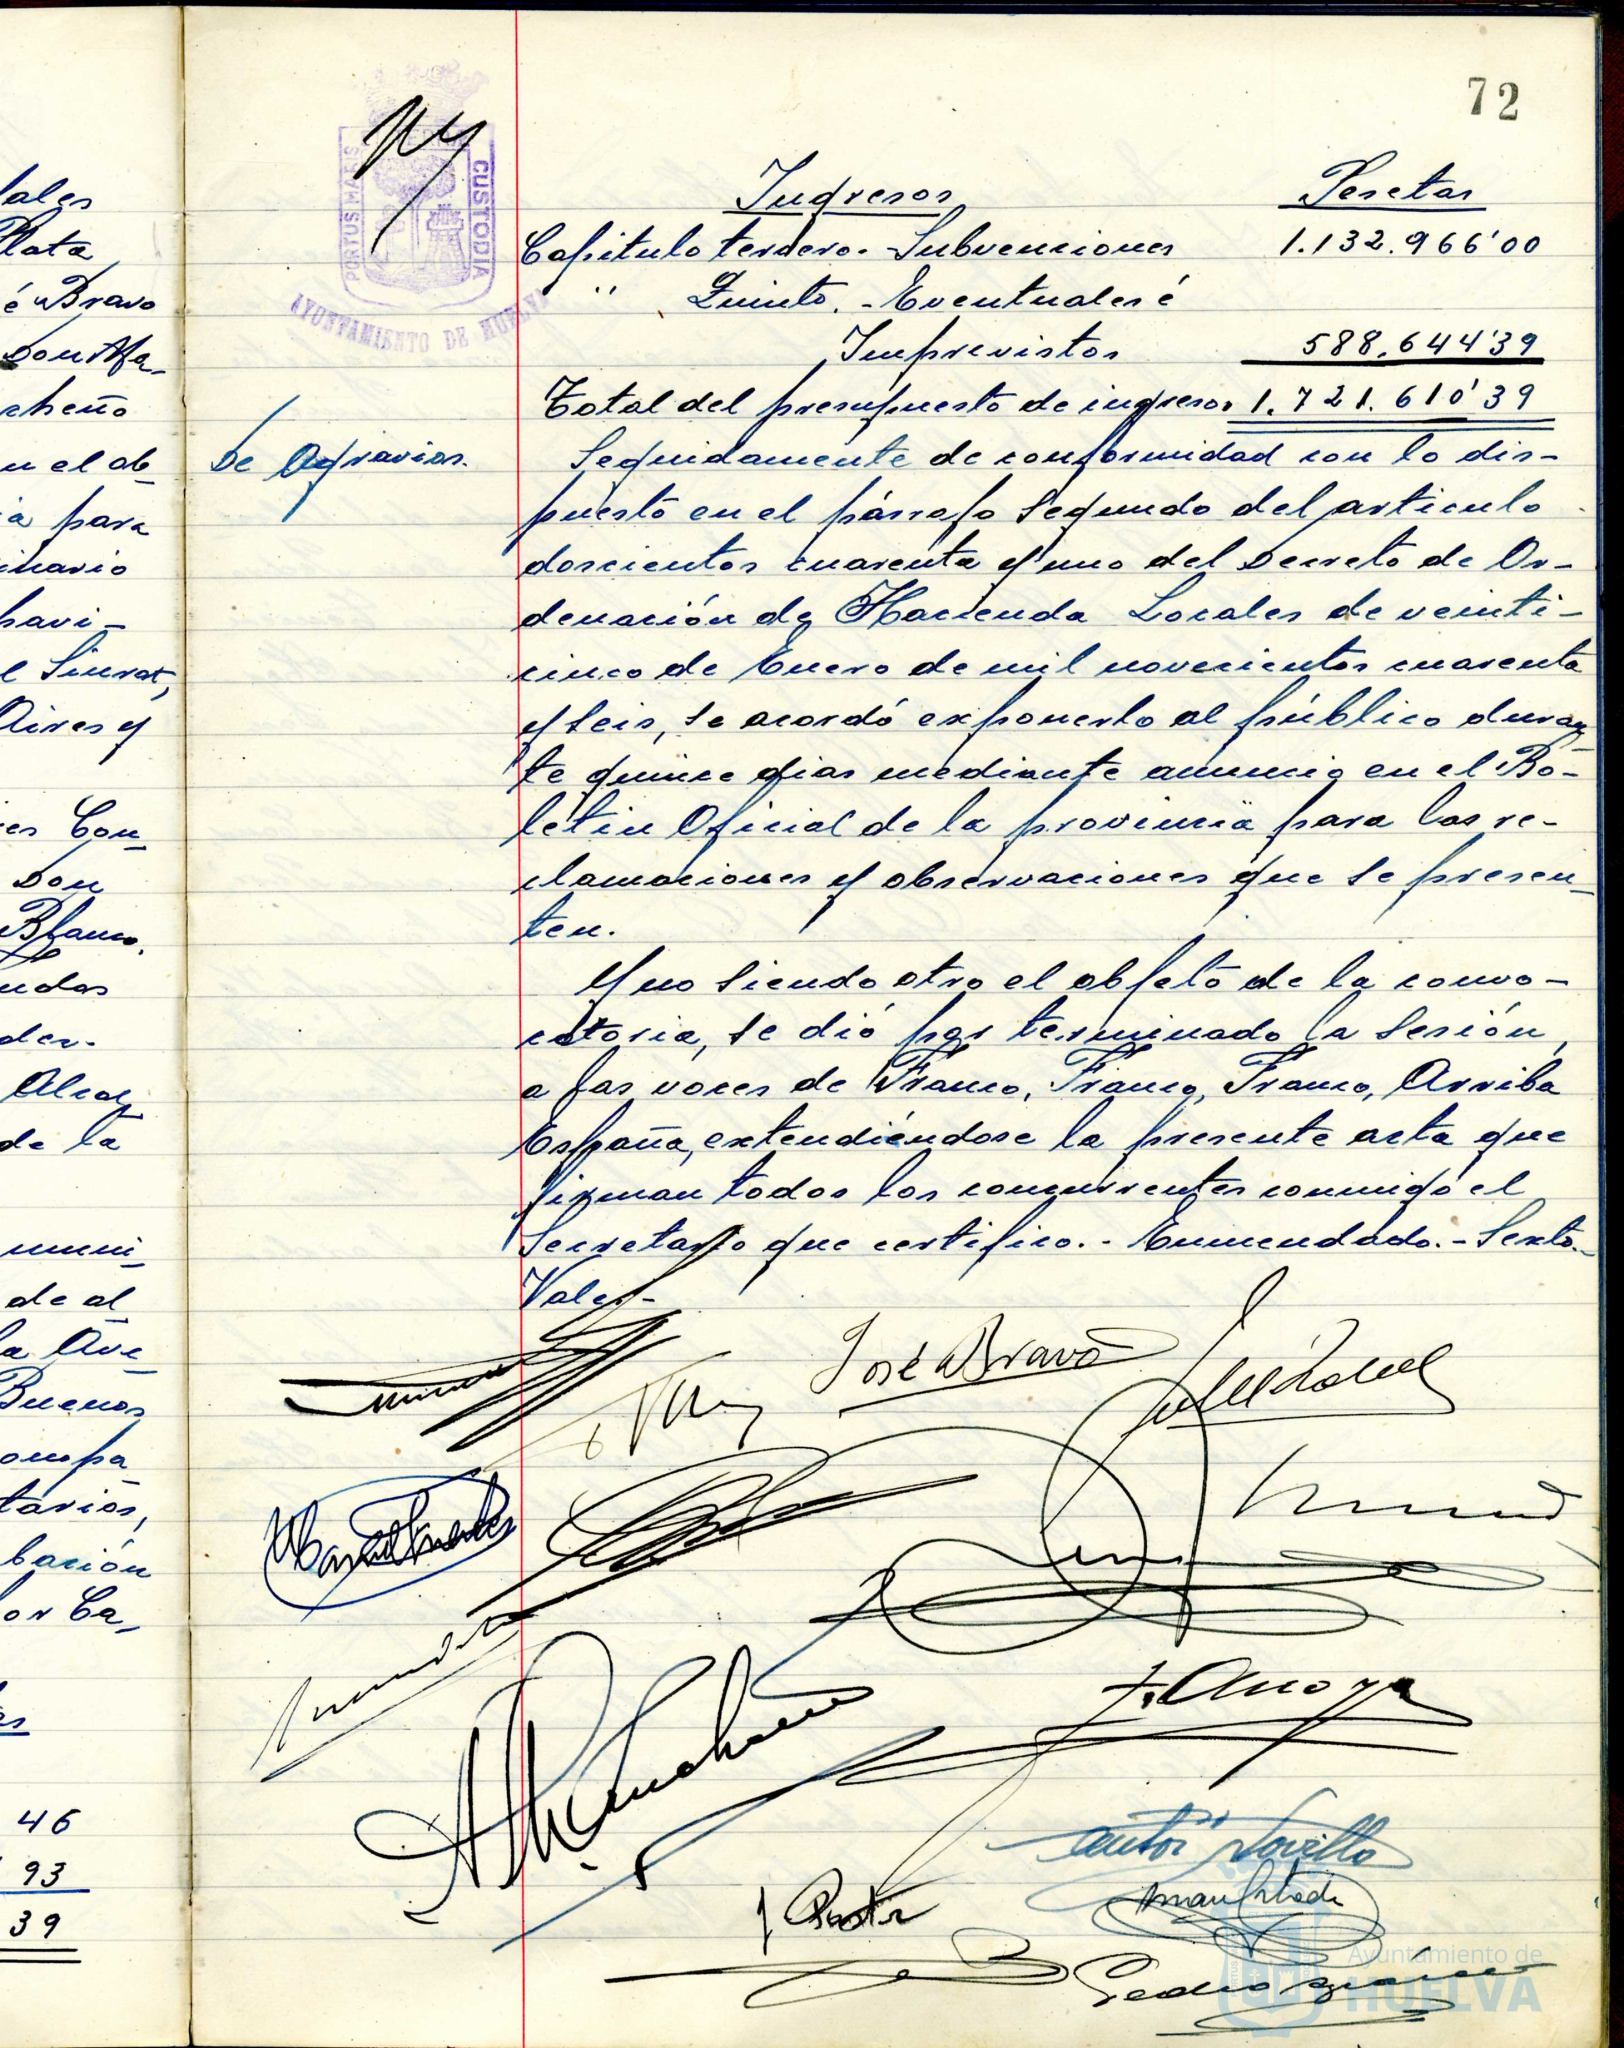 72
PORTUS MARIS
CUSTODIA
AYUNTAMIENTO DE HUELVA
Ingresos Pesetas
Capitulo tercero.- Subvenciones 1.132.966'00
" Quinto.- Eventuales é
Imprevistos 588.644'39
Total del presupuesto de ingresos 1.721.610'39
De Agravios.
Seguidamente de conformidad con lo dis-
puesto en el párrafo segundo del articulo
doscientos cuarenta y uno del Decreto de Or-
denación de Hacienda Locales de veinti-
cinco de Enero de mil novecientos cuarenta
y seis, se acordó exponerlo al público duran-
te quince dias mediante anuncio en el Bo-
letin Oficial de la provincia para las re-
clamaciones y observaciones que se presen-
ten.
Y no siendo otro el objeto de la convo-
catoria, se dió por terminado la sesión,
a las voces de Franco, Franco, Franco, Arriba
España, extendiéndose la presente acta que
firman todos los concurrentes conmigo el
Secretario que certifico.- Enmendado.- Sexto.-
Vale.-
José Bravo
Pedro
Ayuntamiento de
HUELVA
ales
Plata
é Bravo
Don Ra-
cheño
n el ob-
ia para
inario
havi-
Aires y
es Con-
Don
Blanco.
ndas
der.
Alcal
de la
muni-
de al
la Ave
Buenos
ompa
tarios,
bación
or Ca,
46
93
39